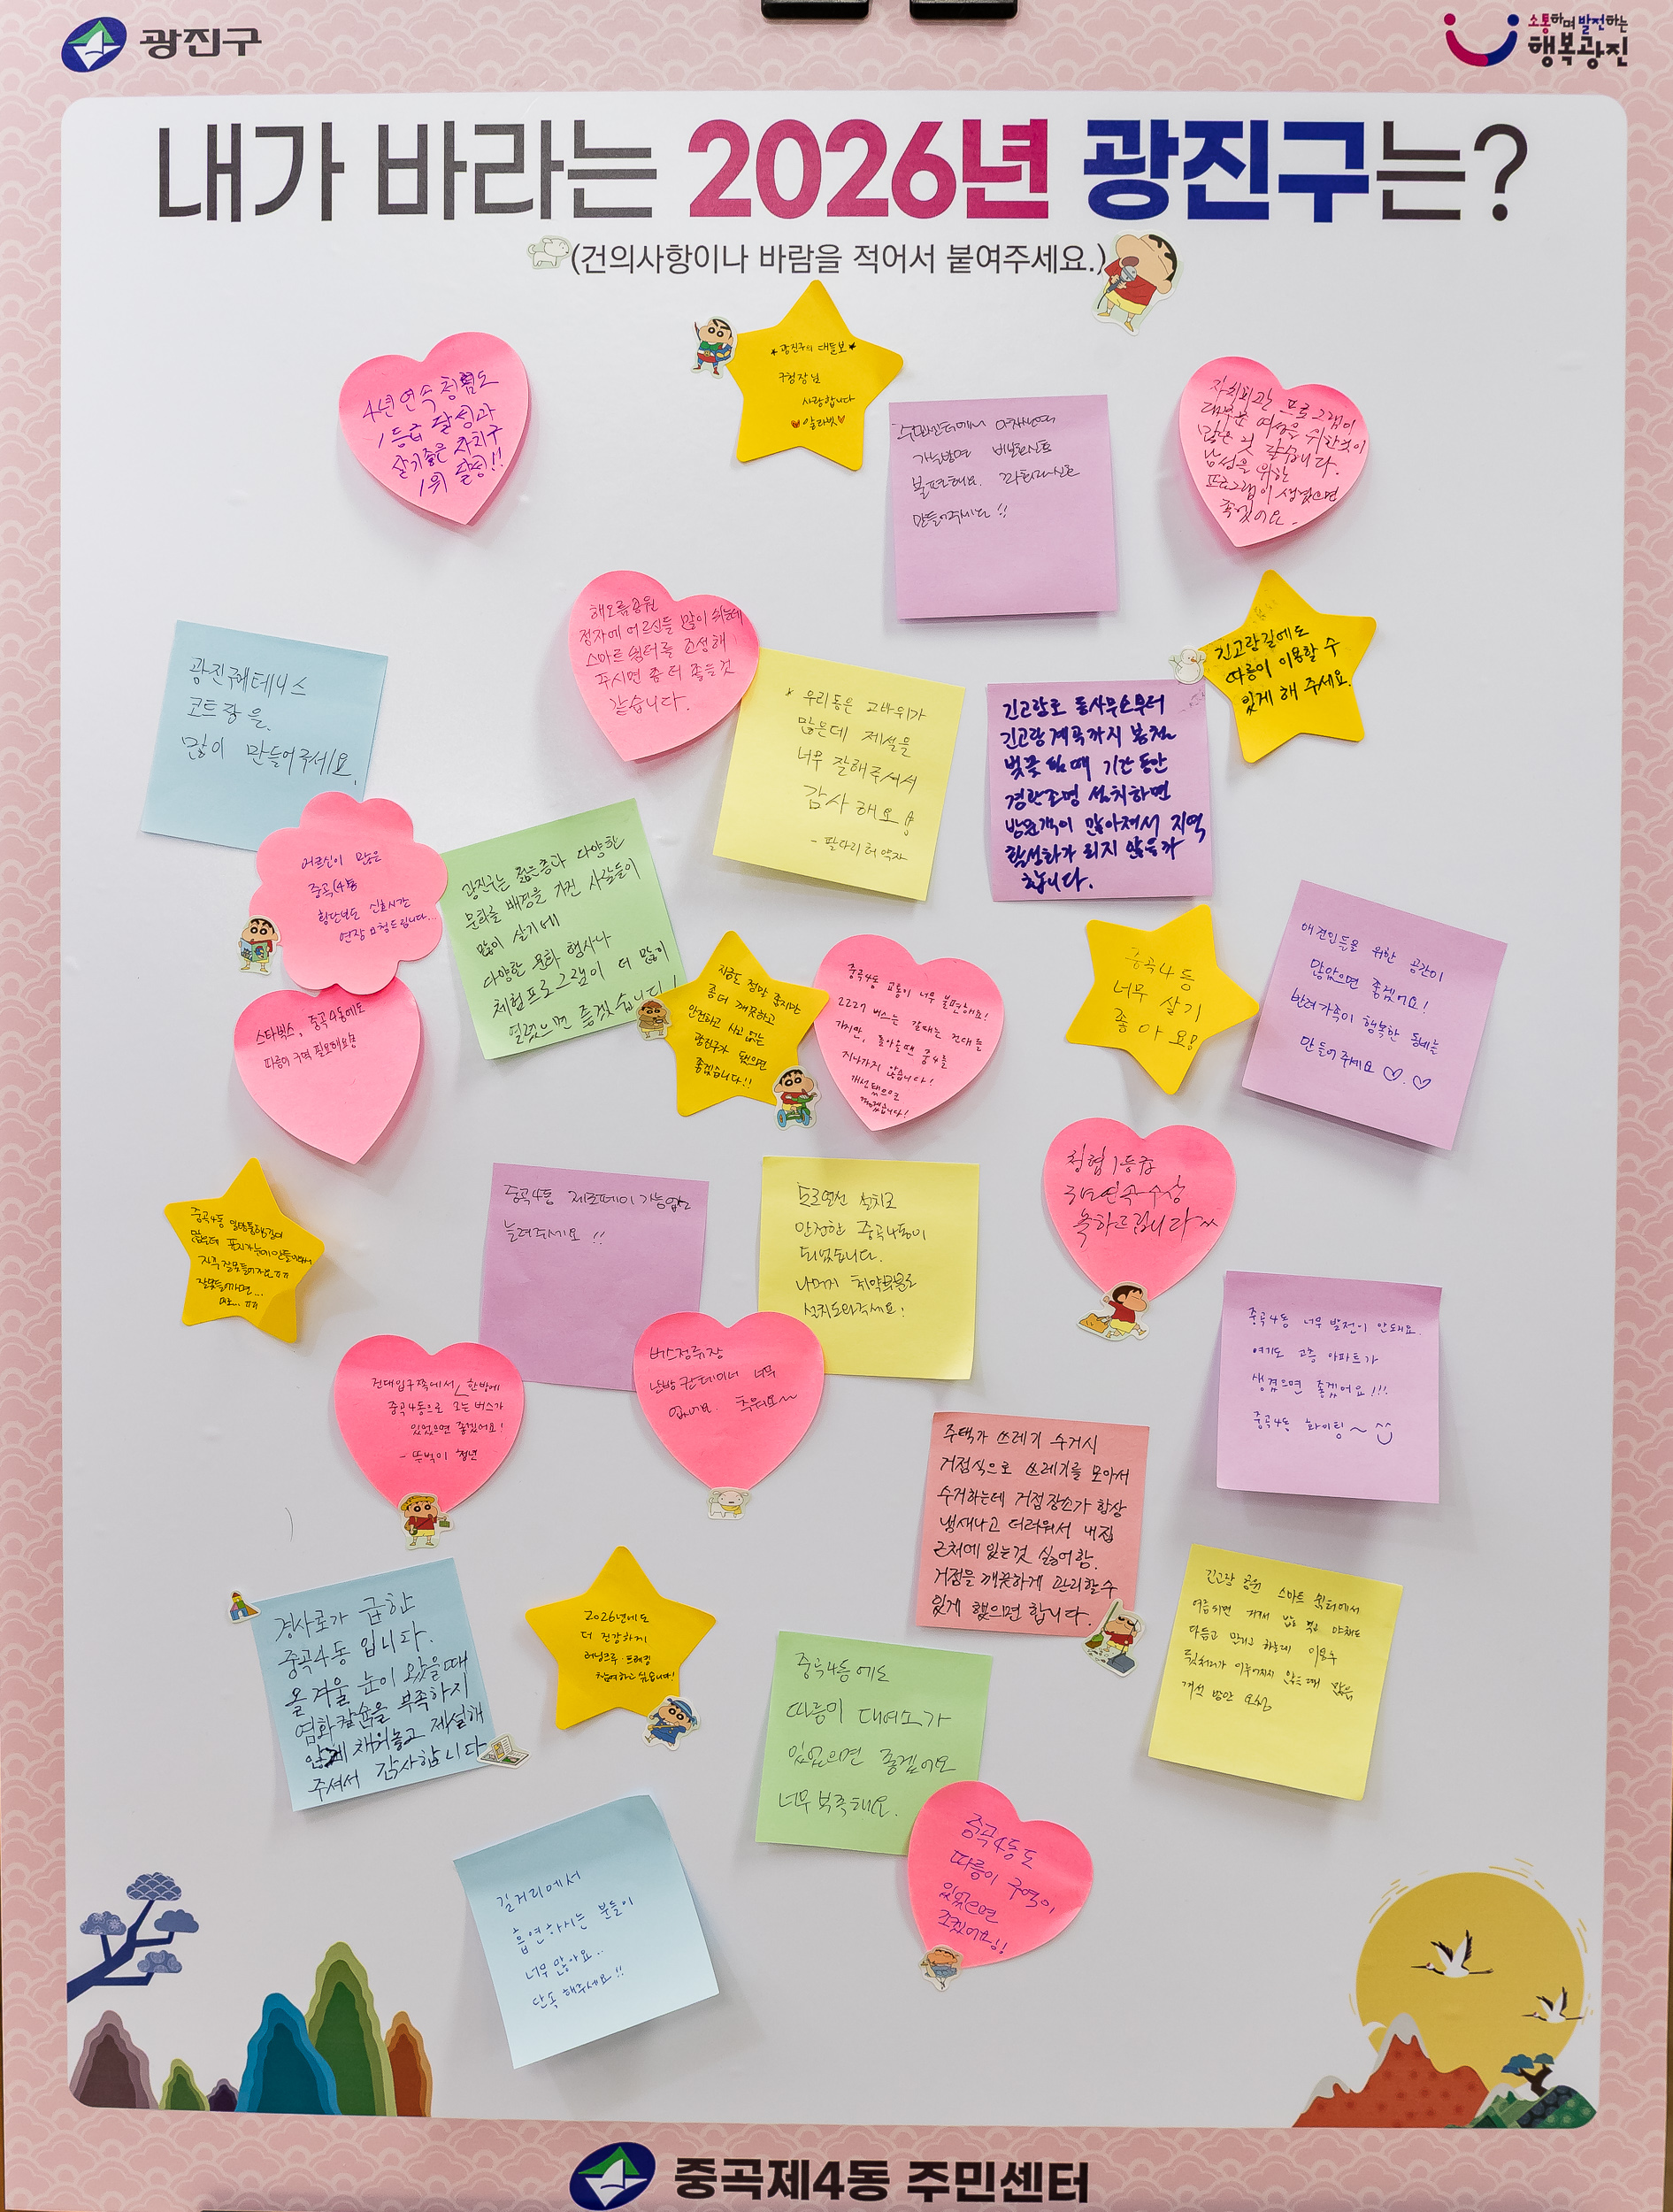 광진구
소통하며 발전하는
행복광진
내가 바라는 2026년 광진구는?
(건의사항이나 바람을 적어서 붙여주세요.)
4년 연속 청렴도
1등급 달성과
살기좋은 자치구
1위 달성!!
*광진구의 대들보*
구청장님
사랑합니다
알라뷰
주민센터에서
가는방면 비보호신호
불편해요. 좌회전신호
만들어주세요!!
자치회관 프로그램이
대부분 여성을 위한것이
많은 것 같습니다.
남성을 위한
프로그램이 생겼으면
좋겠어요.
해오름공원
정자에 어르신들 많이 쉬는데
스마트쉼터를 조성해
주시면 좀 더 좋을것
같습니다.
긴고랑길에도
따릉이 이용할 수
있게 해 주세요.
광진구에 테니스
코트장을
많이 만들어주세요.
* 우리동은 고바위가
많은데 제설을
너무 잘해주셔서
감사해요!
긴고랑로 동사무소부터
긴고랑계곡까지 봄철
벚꽃 필때 기간동안
경관조명 설치하면
방문객이 많아져서 지역
활성화가 되지 않을까
합니다.
어르신이 많은
중곡4동
횡단보도 신호시간
연장 요청드립니다...
광진구는 젊은층과 다양한
문화를 배경을 가진 사람들이
많이 살기에
다양한 문화 행사나
체험프로그램이 더 많이
열렸으면 좋겠습니다!
지금도 정말 좋지만
좀더 깨끗하고
안전하고 사고 없는
광진구가 됐으면
좋겠습니다!!
중곡4동 교통이 너무 불편해요!
2227 버스는 갈때는 건대를
가지만, 돌아올땐 중4를
지나가지 않습니다!
개선됐으면
좋겠습니다!
중곡4동
너무 살기
좋아요!
애견인들을 위한 공간이
많았으면 좋겠어요!
반려가족이 행복한 동네를
만들어주세요 ♡.♡
스타벅스, 중곡4동에도
따릉이 구역 필요해요!
중곡4동 일방통행길이
많은데 표지가 눈에 안들어와서
자주 잘못들어가요ㅠㅠ
잘못들어가면...
ㅠㅠ
중곡4동 제로페이 가능업소
늘려주세요!!
도로열선 설치로
안전한 중곡4동이
되었습니다.
나머지 취약도로
설치도와주세요.
청렴1등급
축하드립니다^^
중곡4동 너무 발전이 안돼요.
여기도 고층 아파트가
생겼으면 좋겠어요!!!
중곡4동 화이팅~
건대입구쪽에서 한방에
중곡4동으로 오는 버스가
있었으면 좋겠어요!
- 뚜벅이 청년
버스정류장
난방 컨테이너 너무
없어요. 추워요~
주택가 쓰레기 수거시
거점식으로 쓰레기를 모아서
수거하는데 거점장소가 항상
냄새나고 더러워서 내집
근처에 있는것 싫어함.
거점을 깨끗하게 관리할수
있게 했으면 합니다.
긴고랑 공원 스마트 쉼터에서
다듬고 만지고 하는데 이용후
뒷처리가 이루어지지 않는때 많음
개선 방안 요청
경사로가 급한
중곡4동 입니다.
올 겨울 눈이 왔을때
염화칼슘을 부족하지
않게 채워놓고 제설해
주셔서 감사합니다
2026년에도
더 건강하게
러닝크루·트레킹
참여하고 싶습니다!
중곡4동에도
따릉이 대여소가
있었으면 좋겠어요
너무 부족해요.
중곡4동도
따릉이 구역이
있었으면
조켔어요!!
길거리에서
흡연하시는 분들이
너무 많아요..
단속 해주세요!!
중곡제4동 주민센터